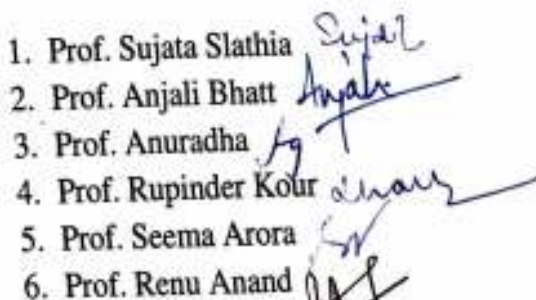 1. Prof. Sujata Slathia
2. Prof. Anjali Bhatt Anjali
3. Prof. Anuradha
4. Prof. Rupinder Kour
5. Prof. Seema Arora
6. Prof. Renu Anand